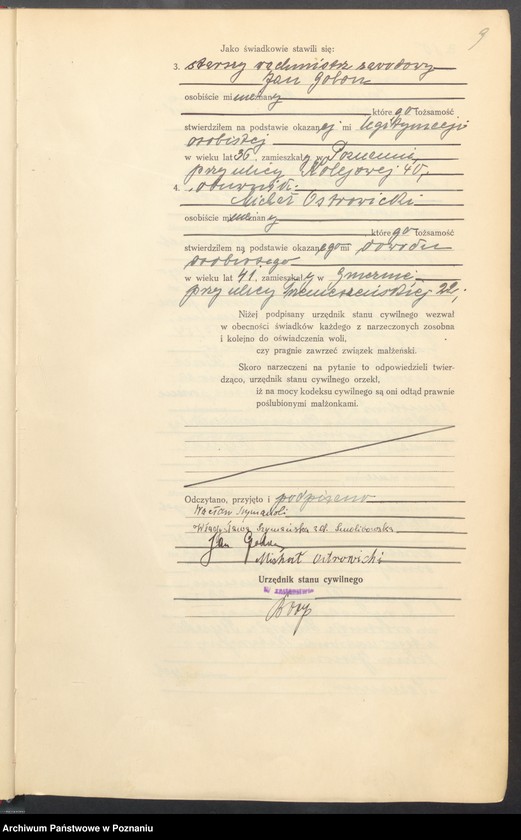 9
Jako świadkowie stawili się:
3. starszy wachmistrz zawodowy
Jan
osobiście mi nieznany
, które go tożsamość
stwierdziłem na podstawie okazanej mi legitymacji
osobistej
w wieku lat 36, zamieszkały w Poznaniu,
przy ulicy Kolejowej 40,
4.
Michał Ostrowicki
osobiście mi
, które go tożsamość
stwierdziłem na podstawie okazanego mi dowodu
osobistego
w wieku lat 41, zamieszkały w Gnieźnie
przy ulicy 22,
Niżej podpisany urzędnik stanu cywilnego wezwał
w obecności świadków każdego z narzeczonych zosobna
i kolejno do oświadczenia woli,
czy pragnie zawrzeć związek małżeński.
Skoro narzeczeni na pytanie to odpowiedzieli twier-
dząco, urzędnik stanu cywilnego orzekł,
iż na mocy kodeksu cywilnego są oni odtąd prawnie
poślubionymi małżonkami.
Odczytano, przyjęto i podpisano
Wacław Szymański
Szymańska zd. Smolibowska
Jan
Michał Ostrowicki
Urzędnik stanu cywilnego
W zastępstwie
Archiwum Państwowe w Poznaniu